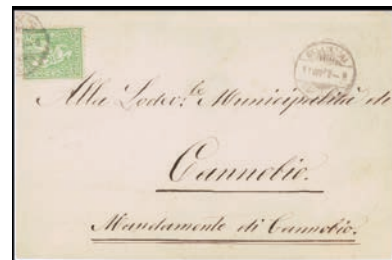 Alla Lodev.le Municipalità di
Cannobio.
Mandamento di Cannobio.